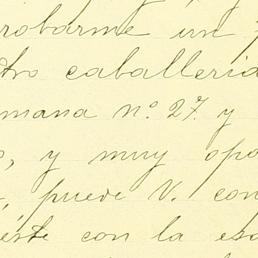 robarme un
tro caballeria
mana nº 27 y
, y muy opo
, puede V. con
éste con la es